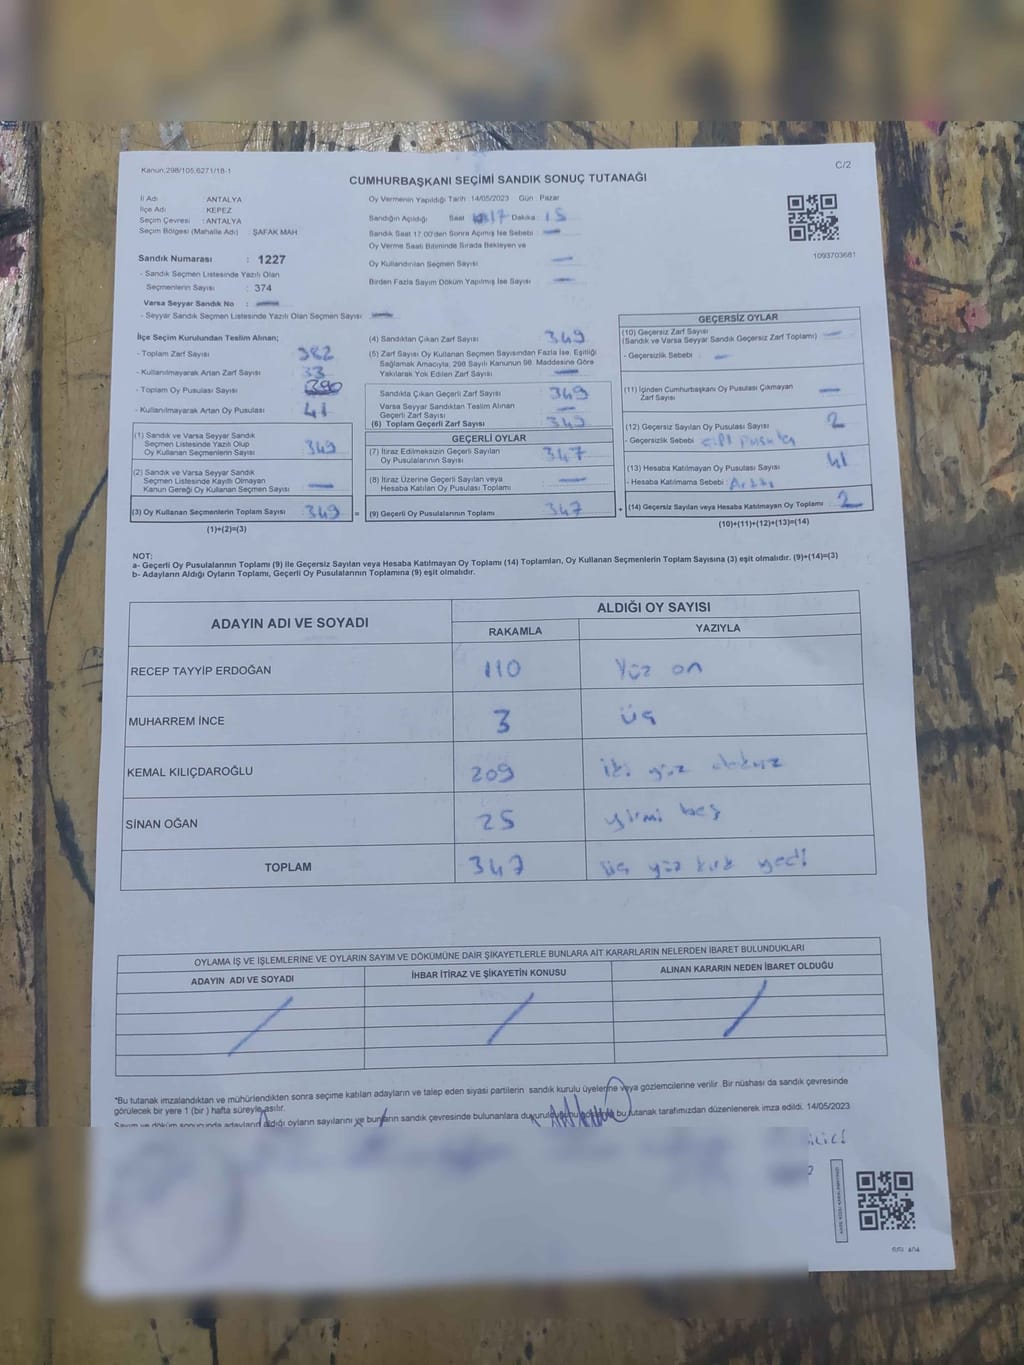 Kanun.298/105.6271/18-1
C/2
CUMHURBAŞKANI SEÇİMİ SANDIK SONUÇ TUTANAĞI
İl Adı : ANTALYA
İlçe Adı : KEPEZ
Seçim Çevresi : ANTALYA
Seçim Bölgesi (Mahalle Adı) : ŞAFAK MAH
Sandık Numarası : 1227
- Sandık Seçmen Listesinde Yazılı Olan
Seçmenlerin Sayısı : 374
Varsa Seyyar Sandık No :
- Seyyar Sandık Seçmen Listesinde Yazılı Olan Seçmen Sayısı :
Oy Vermenin Yapıldığı Tarih : 14/05/2023 Gün : Pazar
Sandığın Açıldığı Saat 17 Dakika : 15
Sandık Saat 17.00'den Sonra Açımış İse Sebebi :
Oy Verme Saati Bitiminde Sırada Bekleyen ve
Oy Kullandırılan Seçmen Sayısı :
Birden Fazla Sayım Döküm Yapılmış İse Sayısı :
1093703681
İlçe Seçim Kurulundan Teslim Alınan;
- Toplam Zarf Sayısı : 382
- Kullanılmayarak Artan Zarf Sayısı : 33
- Toplam Oy Pusulası Sayısı : 390
- Kullanılmayarak Artan Oy Pusulası : 41
(1) Sandık ve Varsa Seyyar Sandık
Seçmen Listesinde Yazılı Olup
Oy Kullanan Seçmenlerin Sayısı : 349
(2) Sandık ve Varsa Seyyar Sandık
Seçmen Listesinde Kayıtlı Olmayan
Kanun Gereği Oy Kullanan Seçmen Sayısı :
(3) Oy Kullanan Seçmenlerin Toplam Sayısı : 349 =
(1)+(2)=(3)
(4) Sandıktan Çıkan Zarf Sayısı : 349
(5) Zarf Sayısı Oy Kullanan Seçmen Sayısından Fazla İse, Eşitliği
Sağlamak Amacıyla; 298 Sayılı Kanunun 98. Maddesine Göre
Yakılarak Yok Edilen Zarf Sayısı :
Sandıkta Çıkan Geçerli Zarf Sayısı : 349
Varsa Seyyar Sandıktan Teslim Alınan
Geçerli Zarf Sayısı :
(6) Toplam Geçerli Zarf Sayısı : 349
GEÇERLİ OYLAR
(7) İtiraz Edilmeksizin Geçerli Sayılan
Oy Pusulalarının Sayısı : 347
(8) İtiraz Üzerine Geçerli Sayılan veya
Hesaba Katılan Oy Pusulası Toplamı :
(9) Geçerli Oy Pusulalarının Toplamı : 347 +
GEÇERSİZ OYLAR
(10) Geçersiz Zarf Sayısı :
(Sandık ve Varsa Seyyar Sandık Geçersiz Zarf Toplamı)
- Geçersizlik Sebebi :
(11) İçinden Cumhurbaşkanı Oy Pusulası Çıkmayan
Zarf Sayısı :
(12) Geçersiz Sayılan Oy Pusulası Sayısı : 2
- Geçersizlik Sebebi :
(13) Hesaba Katılmayan Oy Pusulası Sayısı : 41
- Hesaba Katılmama Sebebi :
(14) Geçersiz Sayılan veya Hesaba Katılmayan Oy Toplamı : 2
(10)+(11)+(12)+(13)=(14)
NOT:
a- Geçerli Oy Pusulalarının Toplamı (9) ile Geçersiz Sayılan veya Hesaba Katılmayan Oy Toplamı (14) Toplamları, Oy Kullanan Seçmenlerin Toplam Sayısına (3) eşit olmalıdır. (9)+(14)=(3)
b- Adayların Aldığı Oyların Toplamı, Geçerli Oy Pusulalarının Toplamına (9) eşit olmalıdır.
ADAYIN ADI VE SOYADI
ALDIĞI OY SAYISI
RAKAMLA YAZIYLA
RECEP TAYYİP ERDOĞAN 110 Yüz on
MUHARREM İNCE 3 üç
KEMAL KILIÇDAROĞLU 209 iki yüz dokuz
SİNAN OĞAN 25 yirmi beş
TOPLAM 347 üç yüz kırk yedi
OYLAMA İŞ VE İŞLEMLERİNE VE OYLARIN SAYIM VE DÖKÜMÜNE DAİR ŞİKAYETLERLE BUNLARA AİT KARARLARIN NELERDEN İBARET BULUNDUKLARI
ADAYIN ADI VE SOYADI İHBAR İTİRAZ VE ŞİKAYETİN KONUSU ALINAN KARARIN NEDEN İBARET OLDUĞU
*Bu tutanak imzalandıktan ve mühürlendikten sonra seçime katılan adayların ve talep eden siyasi partilerin sandık kurulu üyelerine veya gözlemcilerine verilir. Bir nüshası da sandık çevresinde
görülecek bir yere 1 (bir ) hafta süreyle asılır.
Sayım ve döküm sonucunda adayların aldığı oyların sayılarını ve bunların sandık çevresinde bulunanlara bu tutanak tarafımızdan düzenlenerek imza edildi. 14/05/2023